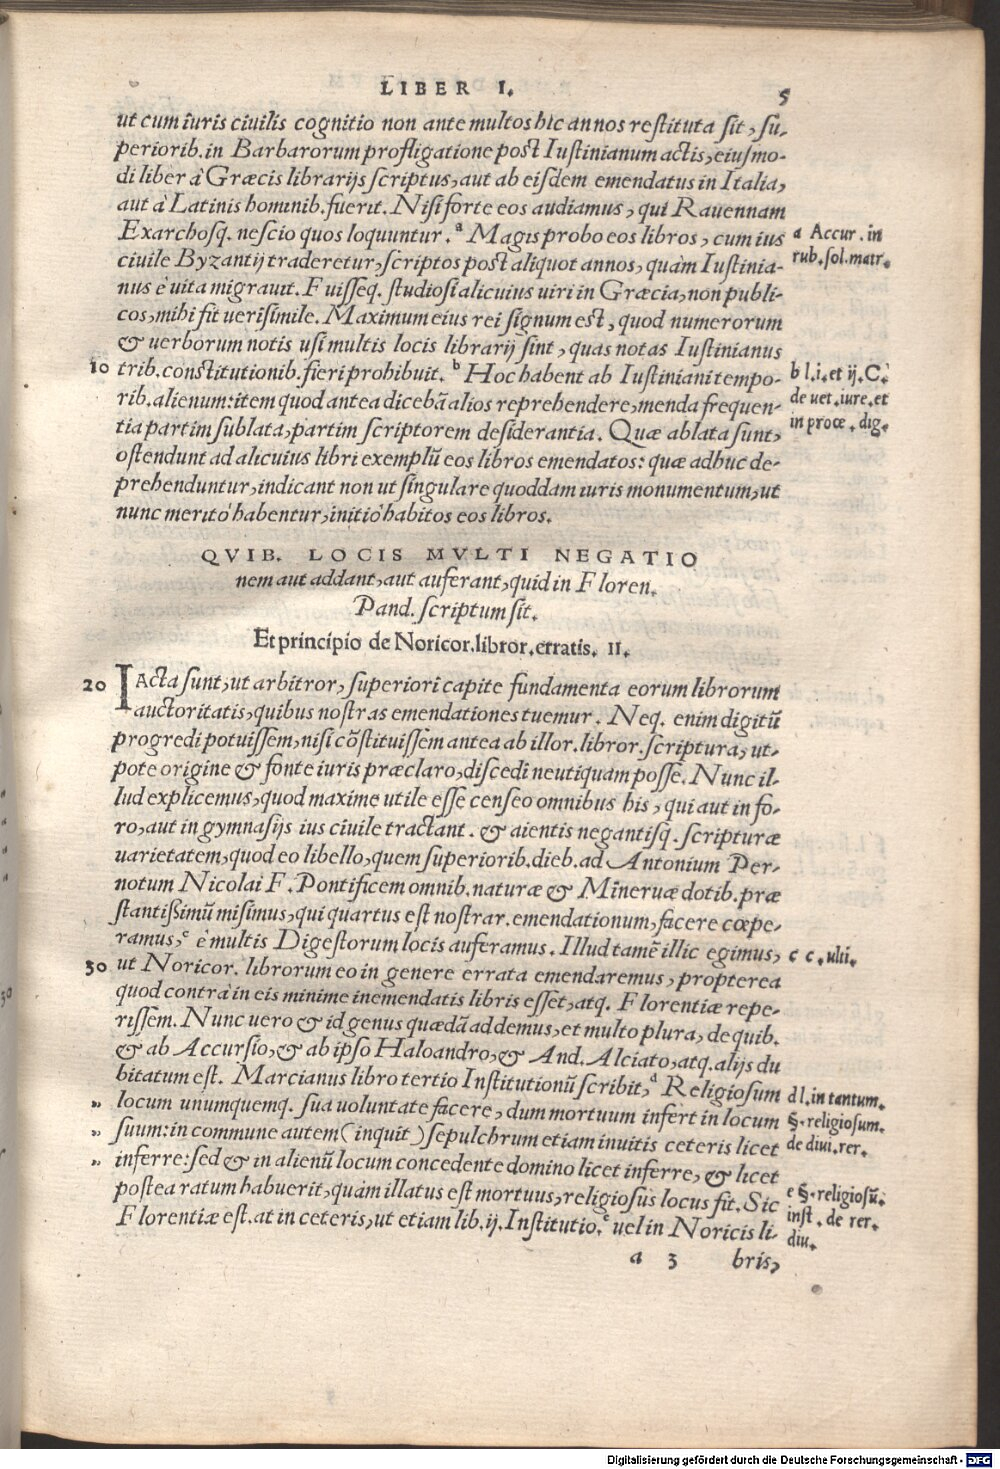 LIBER I.
5
ut cum iuris ciuilis cognitio non ante multos hîc annos restituta sit, su-
periorib. in Barbarorum profligatione post Iustinianum actis, eiusmo-
di liber à Græcis librarijs scriptus, aut ab eisdem emendatus in Italia,
aut à Latinis hominib. fuerit. Nisi forte eos audiamus, qui Rauennam
Exarchosq. nescio quos loquuntur.ᵃ Magis probo eos libros, cum ius
a Accur. in
ciuile Byzantij traderetur, scriptos post aliquot annos, quàm Iustinia-
rub. sol. matr.
nus è uita migrauit. Fuisseq. studiosi alicuius uiri in Græcia, non publi-
cos, mihi fit uerisimile. Maximum eius rei signum est, quod numerorum
& uerborum notis usi multis locis librarij sint, quas notas Iustinianus
10 trib. constitutionib. fieri prohibuit.ᵇ Hoc habent ab Iustiniani tempo-
b l. i. et ij. C.
rib. alienum: item quod antea dicebā alios reprehendere, menda frequen-
de uet. iure. et
tia partim sublata, partim scriptorem desiderantia. Quæ ablata sunt,
in proœ. dig.
ostendunt ad alicuius libri exemplū eos libros emendatos: quæ adhuc de-
prehenduntur, indicant non ut singulare quoddam iuris monumentum, ut
nunc meritò habentur, initiò habitos eos libros.
QVIB. LOCIS MVLTI NEGATIO
nem aut addant, aut auferant, quid in Floren.
Pand. scriptum sit.
Et principio de Noricor. libror. erratis. II.
20 IActa sunt, ut arbitror, superiori capite fundamenta eorum librorum
auctoritatis, quibus nostras emendationes tuemur. Neq. enim digitū
progredi potuissem, nisi cōstituissem antea ab illor. libror. scriptura, ut-
pote origine & fonte iuris præclaro, discedi neutiquam posse. Nunc il-
lud explicemus, quod maxime utile esse censeo omnibus his, qui aut in fo-
ro, aut in gymnasijs ius ciuile tractant. & aientis negantisq. scripturæ
uarietatem, quod eo libello, quem superiorib. dieb. ad Antonium Per-
notum Nicolai F. Pontificem omnib. naturæ & Mineruæ dotib. præ
stantißimū misimus, qui quartus est nostrar. emendationum, facere cœpe-
ramus,ᶜ è multis Digestorum locis auferamus. Illud tamē illic egimus,
c c. ulti.
30 ut Noricor. librorum eo in genere errata emendaremus, propterea
quod contrà in eis minime inemendatis libris esset, atq. Florentiæ repe-
rissem. Nunc uero & id genus quædā addemus, et multo plura, de quib.
& ab Accursio, & ab ipso Haloandro, & And. Alciato, atq. alijs du
bitatum est. Marcianus libro tertio Institutionū scribit,ᵈ Religiosum
d l. in tantum.
„ locum unumquemq. sua uoluntate facere, dum mortuum infert in locum
§. religiosum.
„ suum: in commune autem (inquit) sepulchrum etiam inuitis ceteris licet
de diui. rer.
„ inferre: sed & in alienū locum concedente domino licet inferre, & licet
postea ratum habuerit, quàm illatus est mortuus, religiosus locus fit. Sic
e §. religiosū.
Florentiæ est. at in ceteris, ut etiam lib. ij. Institutio.ᵉ uel in Noricis li-
inst. de rer.
diu.
a 3 bris,
Digitalisierung gefördert durch die Deutsche Forschungsgemeinschaft - DFG